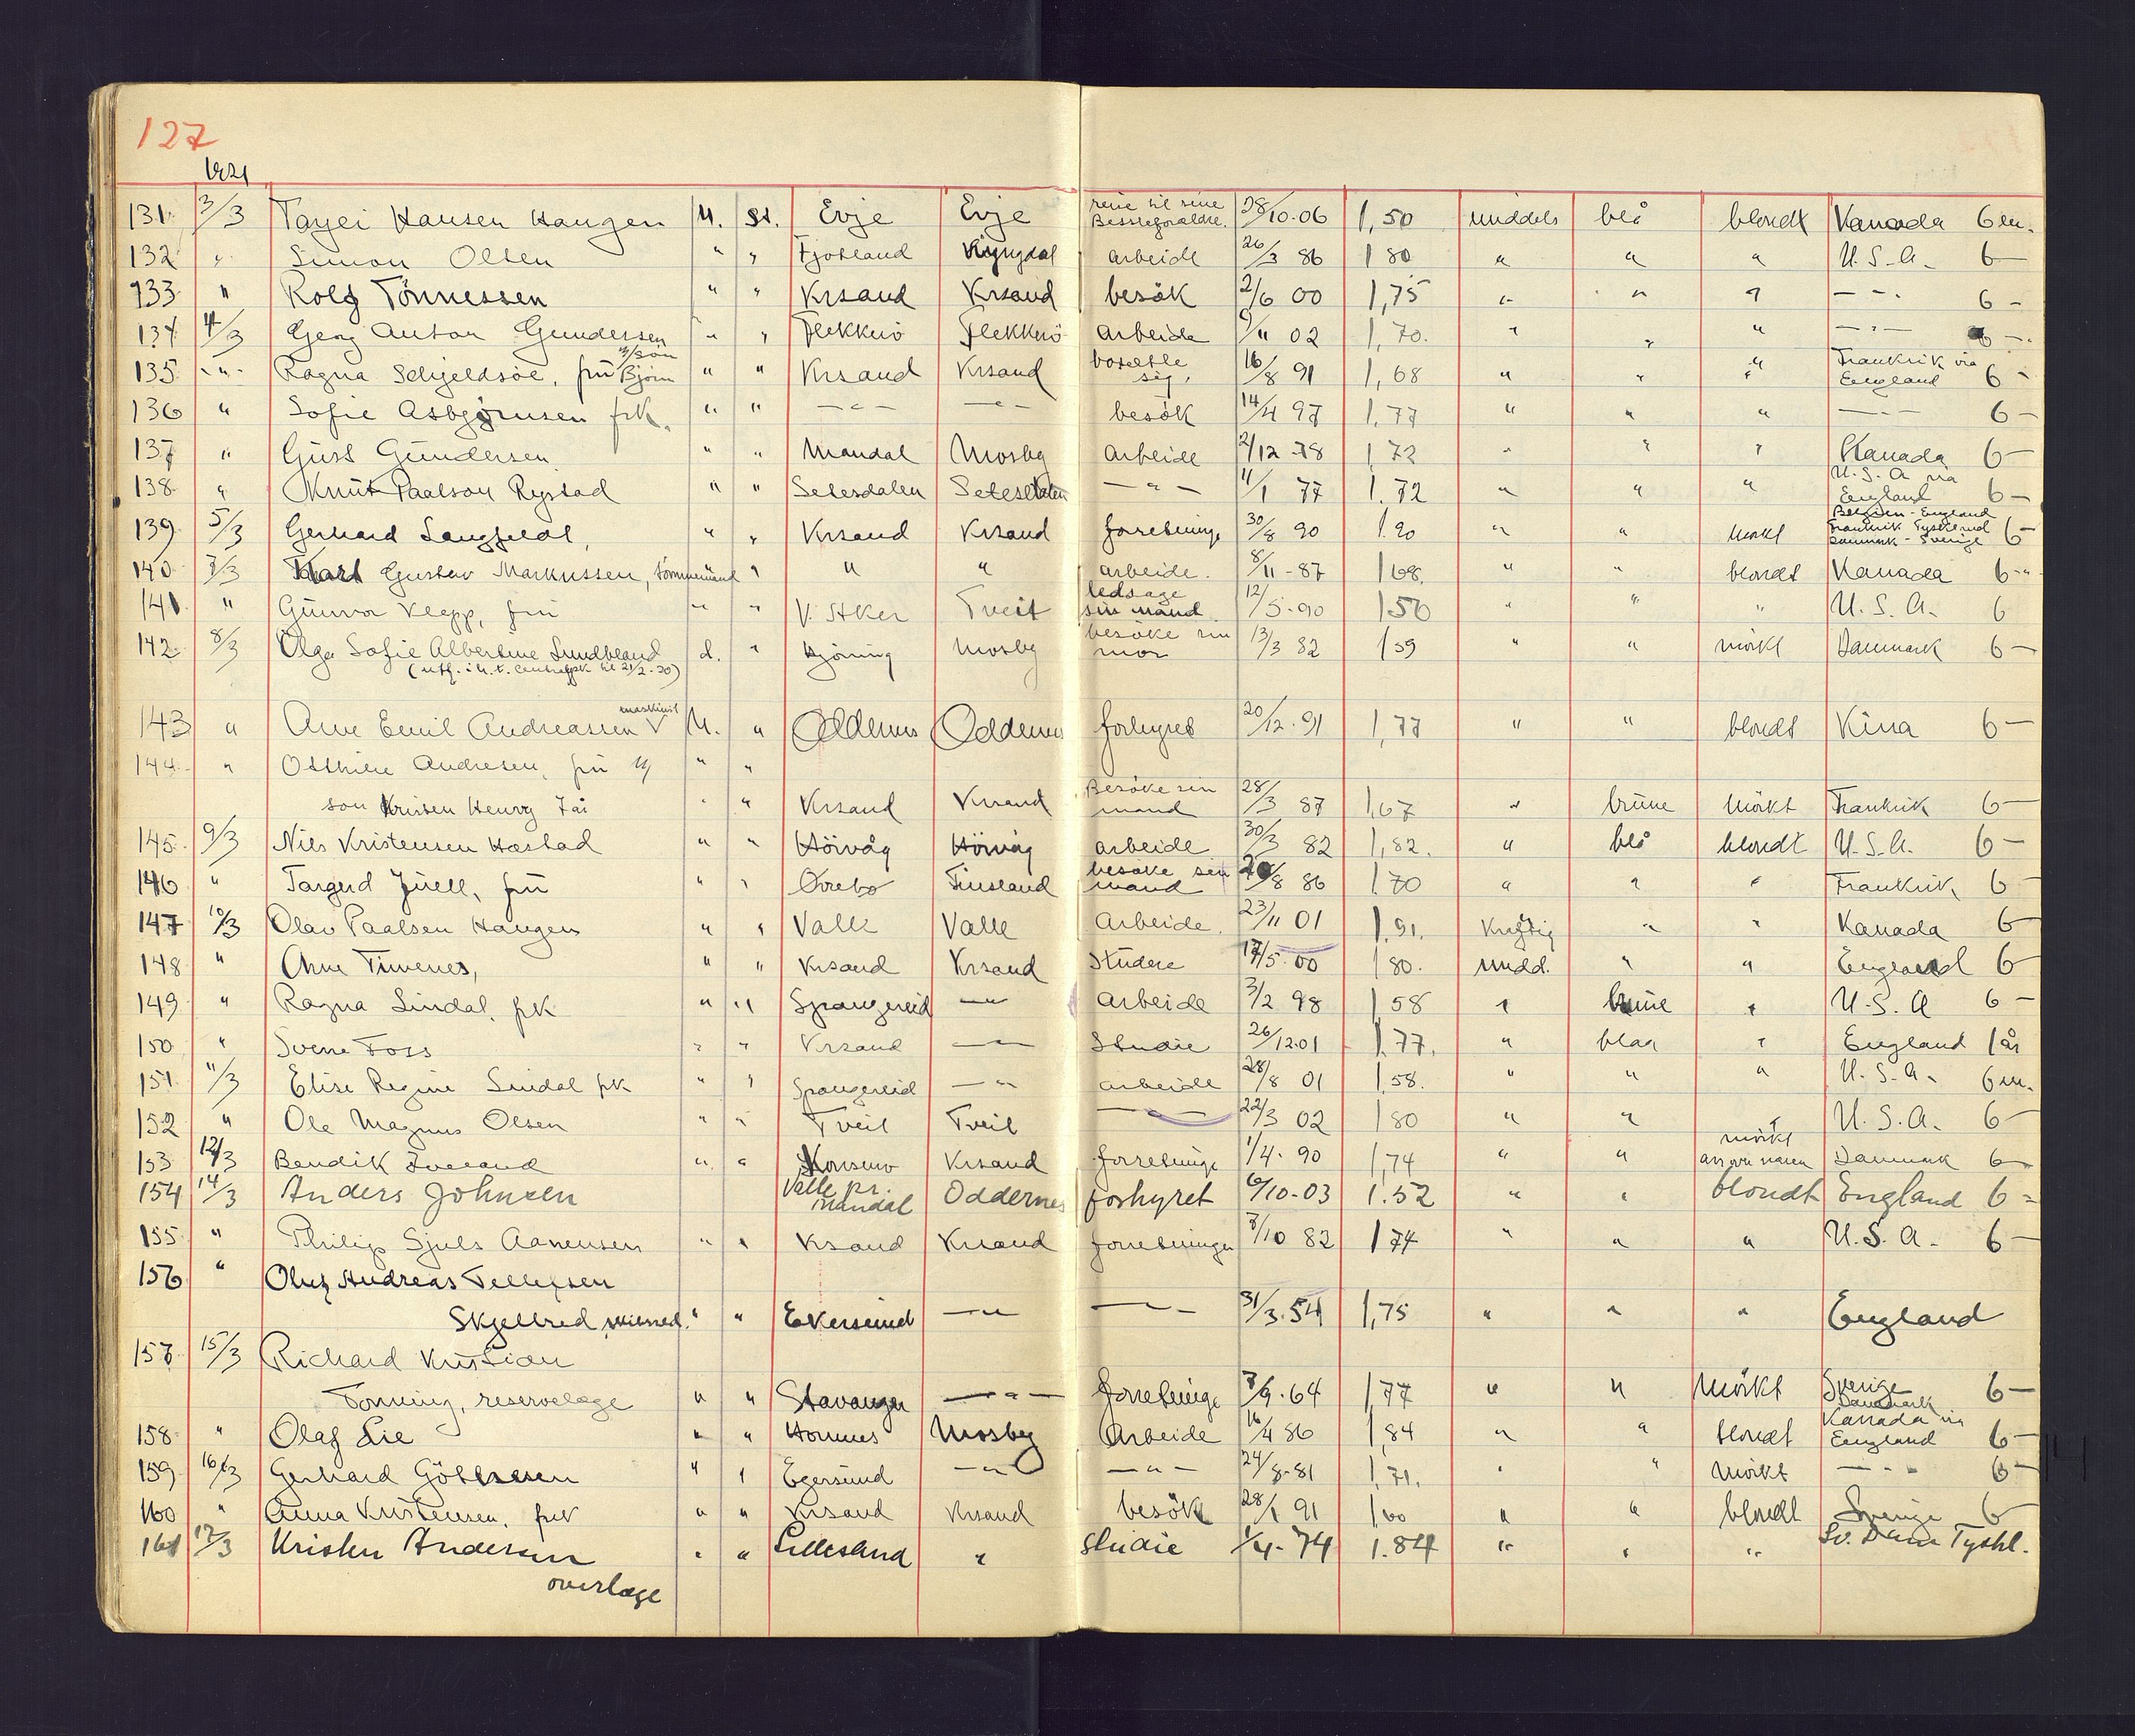 127
1921
131. 3/3 Taxei Hansen Haugen N. St. Evje Evje reise til sine Besteforældre. 28/10-06 1,50 middels blå blondt Kanada 6 m.
132 " Simon Olsen " " Fjotland Kyrkjdal arbeide 26/3 86 1 80 " " " U.S.A. 6 —
133 " Rolf Tönnessen " " Krsand Krsand besök 2/6 00 1,75 " " " — " — 6 —
134 4/3 Georg Anton Gundersen " " Flekkerö Flekkerö arbeide 9/11 02 1,70. " " " — " — 6 —
135 — " — Ragna Schjeldsöe, frü m/sön Björn " " Krsand Krsand bosætte sig. 16/8 91 1,68 " " " Frankrik via England 6 —
136 " Sofie Asbjörnsen frk. " " — " — — " — besök 14/4 97 1,77 " " " — " — 6 —
137 " Gust Gündersen " " Mandal Mosby arbeide 2/12 78 1,72 " " " Kanada 6 —
138 " Knut Paalson Rystad " " Setesdalen Setesdalen — " — 11/1 77 1.72 " " " U.S.A via England 6 —
139 5/3 Gerhard Langfeldt, " " Krsand Krsand forretninge 30/8 90 1.90 " " mörkt Belgien - England Frankrik Tyskland Danmark - Sverige 6 —
140 7/3 Karl Gustav Markussen, tömmermand " " " arbeide. 8/11-87 1 68. " " blondt Kanada 6 — "
141 " Günvor Klepp, frü " " V. Aker Tveit ledsage sin mand 12/5-90 1 56 " " " U.S.A. 6
142 8/3 Olga Sofie Albertine Lundbland d. " Hjöring Mosby besöke sin mor 13/3 82 1 59 " " mörkt Danmark 6 —
143 " Arne Emil Andreassen maskinist N. " Oddernes Oddernes forhyret 20/12-91 1,77 " " blondt Kina 6 —
144 " Otthilie Andresen, frü m/ " "
son Kristen Henry 7 år " " Krsand Krsand Besöke sin mand 28/3 87 1,67 " brüne Mörkt Frankrik 6 —
145 9/3 Nils Kristensen Hæstad " " Hövåg Hövåg arbeide 30/3 82 1,82. " blå blondt U.S.A. 6 —
146 " Targerd Jüell, frü " " Övrebö Finsland besøke sin mand 20/8 86 1.70 " " " Frankrik 6 —
147 10/3 Olav Paalsen Haugen " " Valle Valle Arbeide. 23/11 01 1.91. Kraftig " " Kanada 6 —
148 " Arne Timenes, " " Krsand Krsand Stüdere 17/5-00 1 80. midd. " " England 6
149 " Ragna Lindal, frk " " Spangereid — " arbeide 3/2 98 1,58 " brüne " U.S.A 6 —
150 " Sverre Foss " " Krsand — " — Studie 26/12-01 1.77. " blaa " England 1 år
151 11/3 Elise Regine Lindal frk " " Spangereid — " arbeide 28/8 01 1,58. " " " U.S.A. 6 m.
152 " Ole Magnus Olsen " " Tveit Tveit — " — 22/3 02 1 80 " " " U.S.A. 6 —
153 12/3 Bendik Iveland " " Konsmo Krsand forretninge 1/4-90 1,74 " " mörkt Danmark 6 —
154 14/3 Anders Johnsen Valle pr. Mandal Oddernes forhyret 6/10-03 1.52 " " blondt England 6 —
155 " Philip Sjuls Aanensen " " Krsand Krsand forretninger 7/10 82 1 74 " " " U.S.A. 6 —
156 " Oluf Andreas Tellefsen
Skjelbred " " Ekersund — " — " — 31/3.54 1,75 " " " England
157 15/3 Richard Kristian
Fonning, reservelæge " " Stavanger — " — forretninge 7/9-64 1,77 " " Mörkt Sverige Danmark 6 —
158 " Olaf Lie " " Hommes Mosby Arbeide 16/4 86 1,84 " " blondt Kanada via England 6 —
159 16/3 Gerhard Göttesen " " Egersund — " — " — 24/8-81 1,71. " " Mörkt — " — 6 —
160 " Anna Kristensen, frk " " Krsand Krsand besök 28/1 91 1,60 " " blondt Sverige 6
161 17/3 Kristen Andersen " " Lillesand " Studie 1/4-74 1.84 " " " Sv. Dan Tyskl.
overlæge